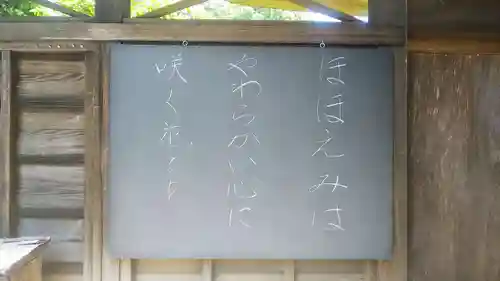 ほほえみは
やわらかい心に
咲く花から